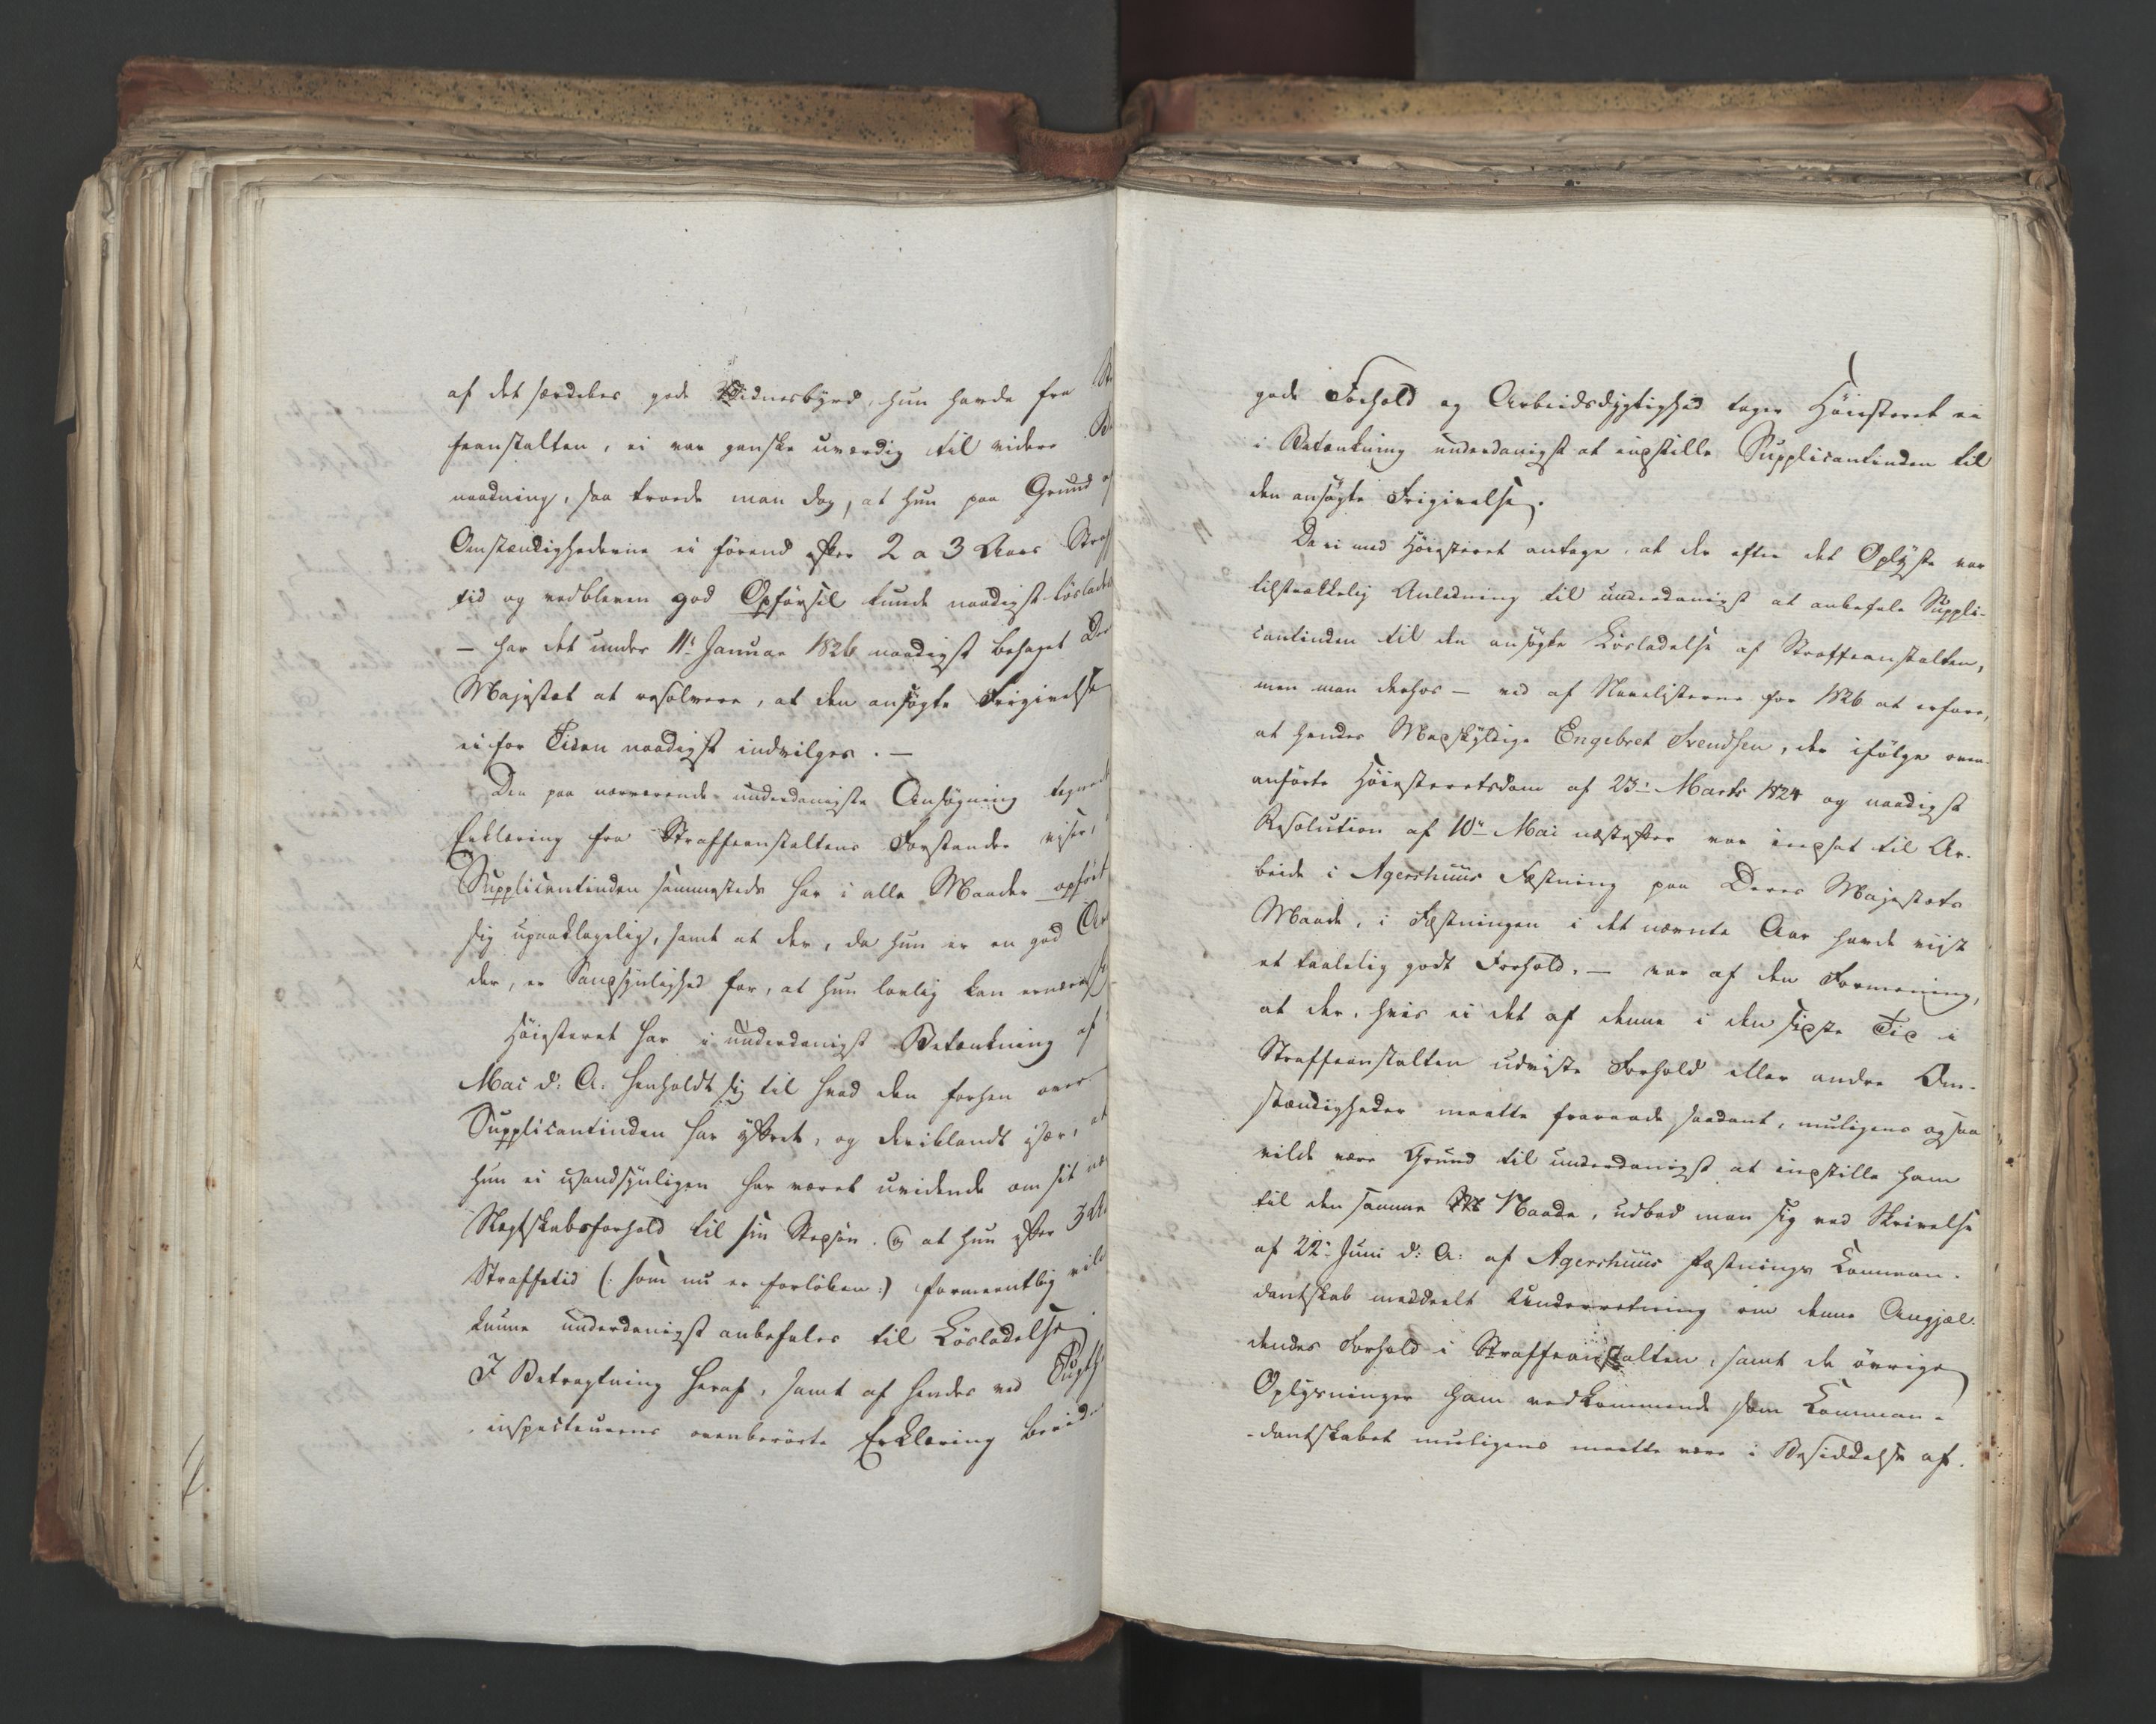 af det særdeles gode Vidnesbyrd, hun havde fra St
feanstalten, ei var ganske uværdig til videre Be
naadning, saa troede man dog, at hun paa Grund af
Omstændighederne ei førend efter 2 a 3 Aars Straf
tid og vedbleven god Opførsel kunde naadigst løslades
– har det under 11te Januar 1826 naadigst behaget Der
Majestæt at resolvere, at den ansøgte Frigivelse
ei for Tiden naadigst indvilges. –
Den paa nærværende underdanigste Ansøgning tegnede
Erklæring fra Straffeanstaltens Forstander viser,
Supplicantinden sammesteds har i alle Maader opført
sig upaaklagelig, samt at der, da hun er en god Ar
der, er Sandsynlighed for, at hun lovlig kan ernære sig
Høiesteret har i underdanigst Betænkning af
Mai d: A: henholdt sig til hvad den forhen over
Supplicantinden har yttret, og deriblandt især, at
hun ei usandsynligen har været uvidende om sit nær
Slegtskabsforhold til sin Stepsøn. og at hun efter 3 Aa
Straffetid (: som nu er forløben :) formeentlig vild
kunne underdanigst anbefales til Løsladelse.
I Betragtning heraf, samt af hendes ved Tugth
inspecteurens ovenberørte Erklæring bevid
gode Forhold og Arbeidsdygtighed tager Høiesteret ei
i Betænkning underdanigst at indstille Supplicantinden til
den ansøgte Frigivelse.
Da vi med Høiesteret antage, at der efter det Oplyste var
tilstrækkelig Anledning til underdanigst at anbefale Suppli-
cantinden til den ansøgte Løsladelse af Straffeanstalten,
men man derhos – ved af Slavelisterne for 1826 at erfare,
at hendes Medskyldige Engebret Svendsen, der ifølge oven-
anførte Høiesteretsdom af 23de Marts 1824 og naadigst
Resolution af 10de Mai næstefter var indsat til Ar-
beide i Agershuus Fæstning paa Deres Majestæts
Naade, i Fæstningen i det nævnte Aar havde viist
et taalelig godt Forhold, – var af den Formening,
at der, hvis ei det af denne i den sidste Tid i
Straffeanstalten udviste Forhold eller andre Om-
stændigheder maatte fraraade saadant, muligens ogsaa
vilde være Grund til underdanigst at indstille ham
til den samme Naade, udbad man sig ved Skrivelse
af 22de Juni d: A: af Agershuus Fæstnings Comman-
dantskab meddeelt Underretning om denne Angjæl-
dendes Forhold i Straffeanstalten, samt de øvrige
Oplysninger ham vedkommende som Comman-
-dantskabet muligens maatte være i Besiddelse af.